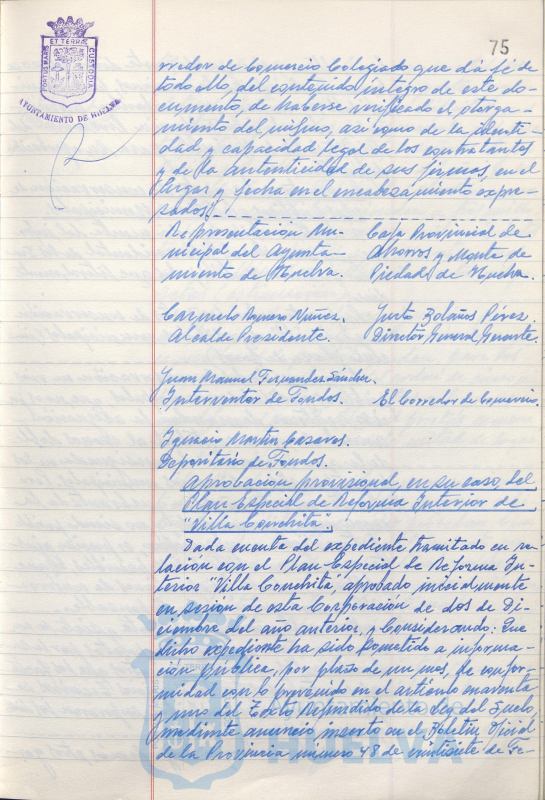 75
PORTUS MARIS ET TERRAE CUSTODIA
AYUNTAMIENTO DE HUELVA
rredor de Comercio Colegiado que dá fé de
todo ello, del contenido íntegro de este do-
cumento, de haberse verificado el otorga-
miento del mismo, así como de la identi-
dad y capacidad legal de los contratantes
y de la autenticidad de sus firmas, en el
lugar y fecha en el encabezamiento expre-
sados.
Representación Mu-
nicipal del Ayunta-
miento de Huelva.
Caja Provincial de
Ahorros y Monte de
Piedad de Huelva.
Carmelo Romero Núñez.
Alcalde Presidente.
Justo Bolaños Pérez.
Director General Gerente.
Juan Manuel Fernandez Sánchez.
Interventor de Fondos.
El Corredor de Comercio.
Ignacio Martín Cazares.
Depositario de Fondos.
Aprobación provisional, en su caso, del
Plan Especial de Reforma Interior de
"Villa Conchita".
Dada cuenta del expediente tramitado en re-
lación con el Plan Especial de Reforma In-
terior "Villa Conchita", aprobado inicialmente
en sesión de esta Corporación de dos de Di-
ciembre del año anterior, y Considerando: Que
dicho expediente ha sido sometido a informa-
ción pública, por plazo de un mes, de confor-
midad con lo prevenido en el artículo cuarenta
y uno del Texto Refundido de la Ley del Suelo,
mediante anuncio inserto en el Boletín Oficial
de la Provincia número 48 de veintisiete de Fe-